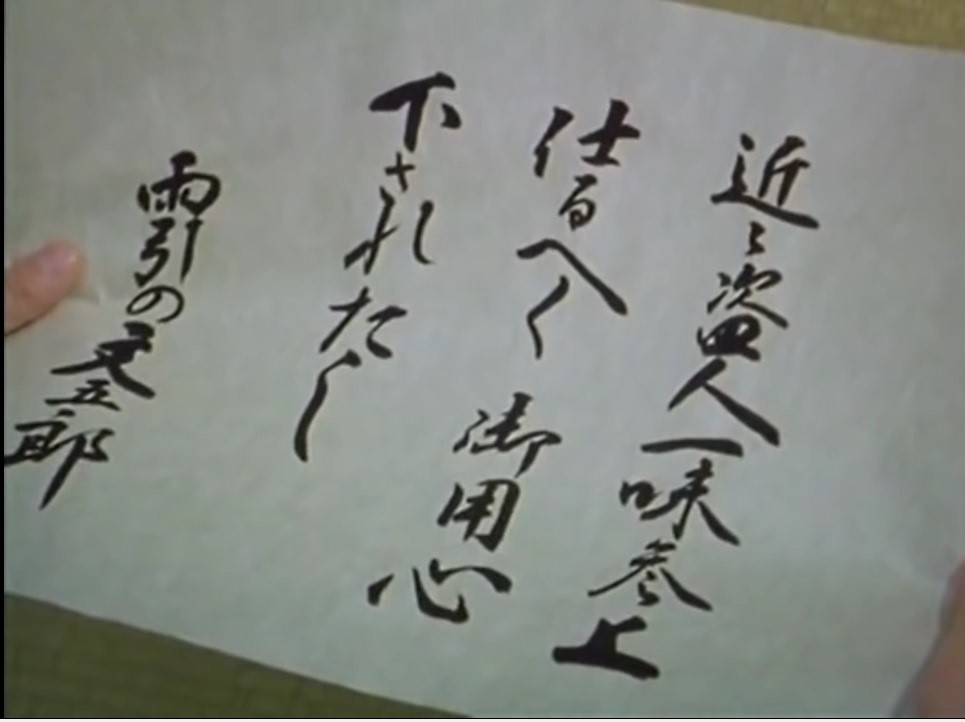 近々盗人一味参上
仕るへく御用心
下されたし
雨引の文五郎